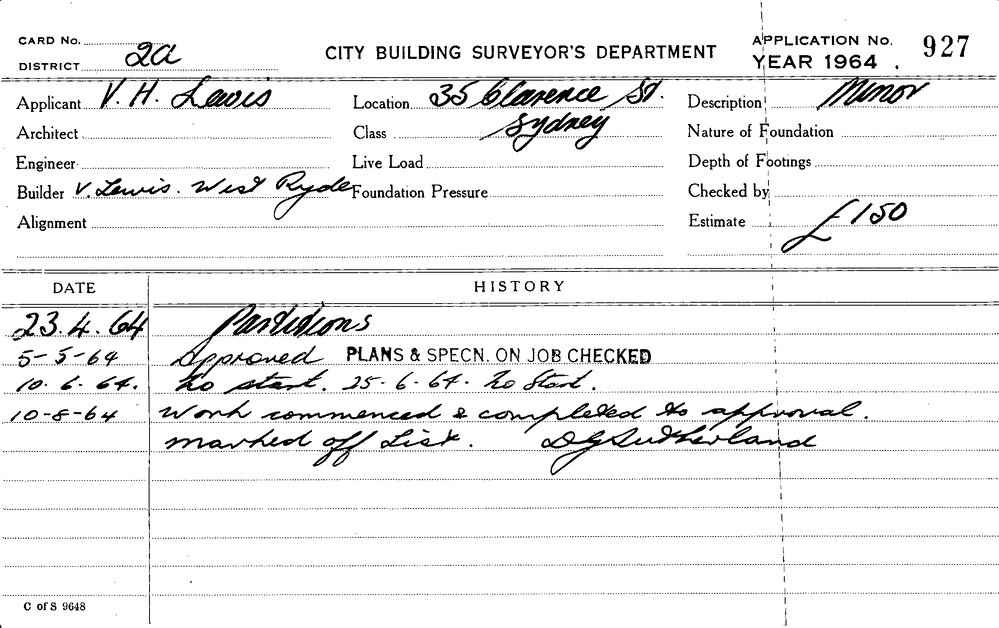 CARD No. CITY BUILDING SURVEYOR'S DEPARTMENT APPLICATION No. 927
DISTRICT 2a YEAR 1964 .
Applicant V. H. Lewis Location 35 Clarence St. Description Minor
Architect Class Sydney Nature of Foundation
Engineer Live Load Depth of Footings
Builder V. Lewis. West Ryde Foundation Pressure Checked by
Alignment Estimate £150
DATE HISTORY
23.4.64 Partitions
5-5-64 Approved PLANS & SPECN. ON JOB CHECKED
10.6.64. No start. 25-6-64. No Start.
10-8-64 Work commenced & completed to approval.
marked off List. DG Sutherland
C of S 9648